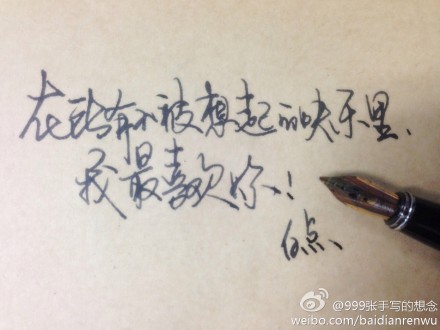 在所有不被想起的快乐里、
我最喜欢你！
白点
@999张手写的想念
weibo.com/baidianrenwu